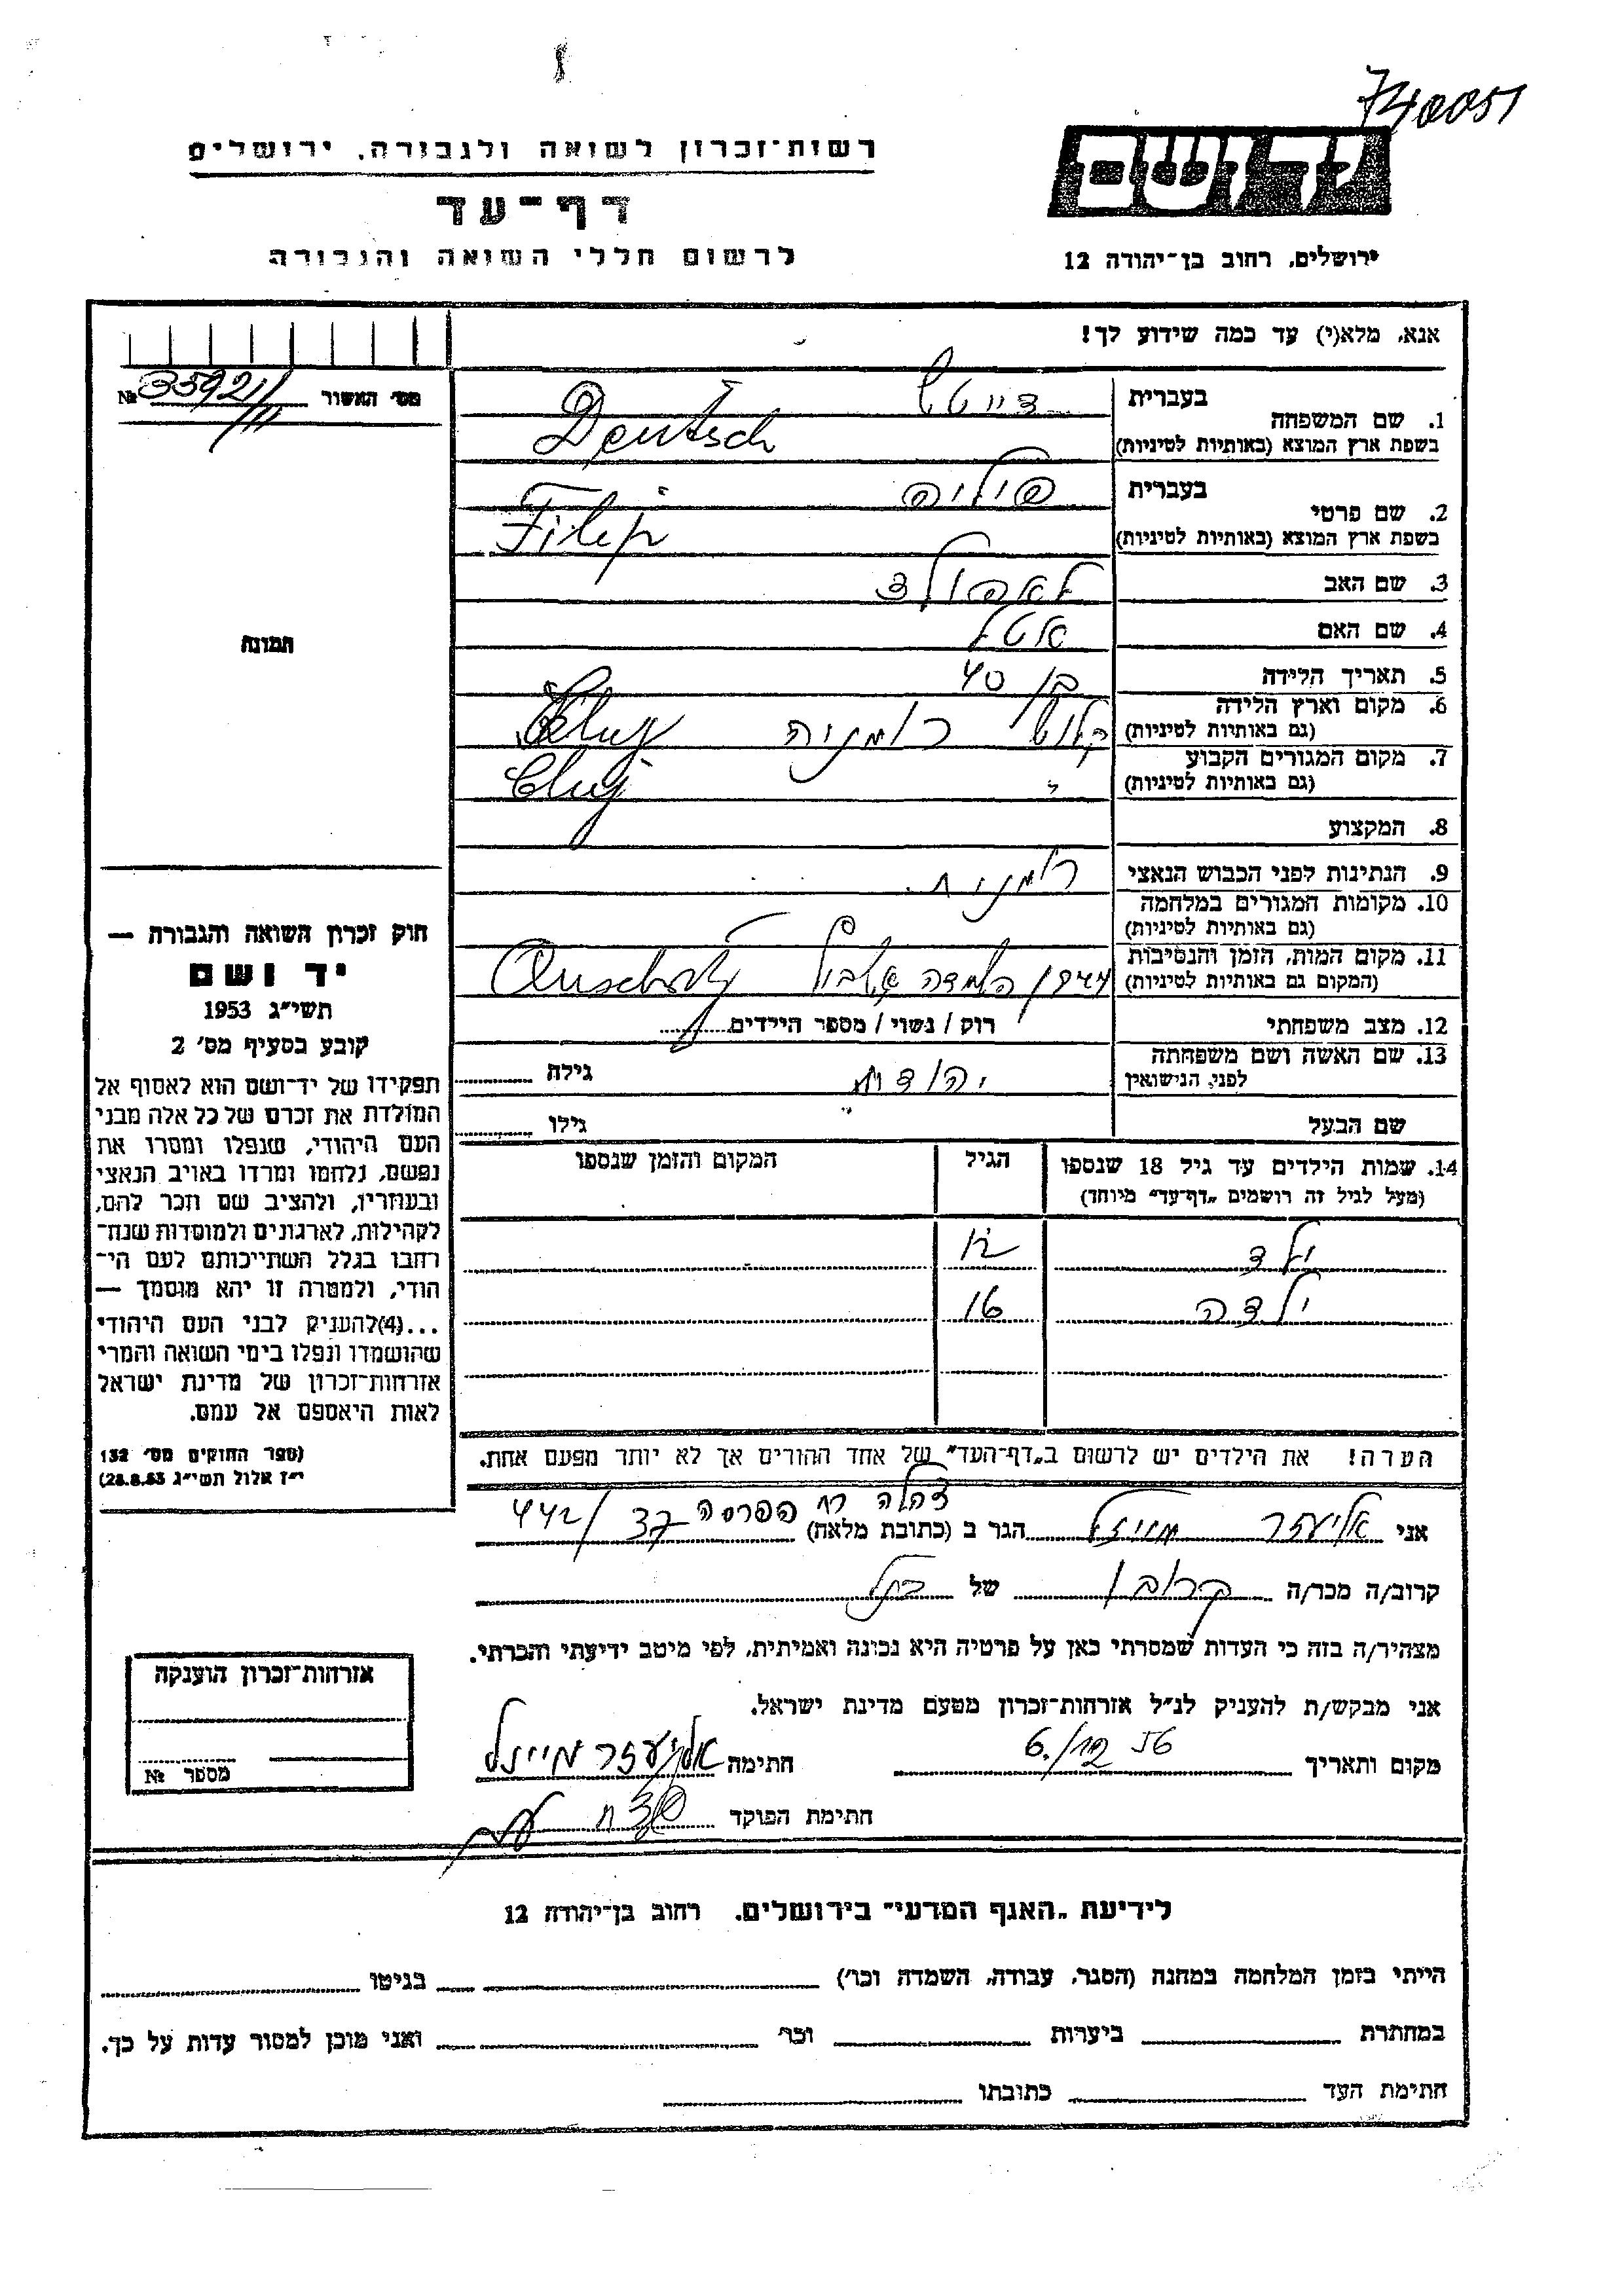 740051
יד ושם
ירושלים, רחוב בן-יהודה 12
רשות-זכרון לשואה ולגבורה, ירושלים
דף-עד
לרשום חללי השואה והגבורה
אנא, מלא(י) עד כמה שידוע לך!
מס' האשור № 35921/III
1. שם המשפחה
בעברית דייטש
בשפת ארץ המוצא (באותיות לטיניות) Deutsch
2. שם פרטי
בעברית פיליפ
בשפת ארץ המוצא (באותיות לטיניות) Filip
3. שם האב לאפולד
4. שם האם אטל
5. תאריך הלידה בן 40
6. מקום וארץ הלידה (גם באותיות לטיניות) קלוז רומניה Cluj
7. מקום המגורים הקבוע (גם באותיות לטיניות) " Cluj
8. המקצוע
9. הנתינות לפני הכבוש הנאצי רומנית
10. מקומות המגורים במלחמה (גם באותיות לטיניות)
11. מקום המות, הזמן והנסיבות (המקום גם באותיות לטיניות) 1944
12. מצב משפחתי רוק / נשוי / מספר הילדים
13. שם האשה ושם משפחתה לפני הנישואין יהודית גילה
שם הבעל גילו
14. שמות הילדים עד גיל 18 שנספו
(מעל לגיל זה רושמים "דף-עד" מיוחד)
הגיל
המקום והזמן שנספו
ילד 12
ילדה 16
הערה! את הילדים יש לרשום ב"דף-העד" של אחד ההורים אך לא יותר מפעם אחת.
תמונה
חוק זכרון השואה והגבורה —
יד ושם
תשי"ג 1953
קובע בסעיף מס' 2
תפקידו של יד-ושם הוא לאסוף אל
המולדת את זכרם של כל אלה מבני
העם היהודי, שנפלו ומסרו את
נפשם, נלחמו ומרדו באויב הנאצי
ובעוזריו, ולהציב שם וזכר להם,
לקהילות, לארגונים ולמוסדות שנח־
רחבו בגלל השתייכותם לעם הי־
הודי, ולמטרה זו יהא מוסמך —
...(4)להעניק לבני העם היהודי
שהושמדו ונפלו בימי השואה והמרי
אזרחות-זכרון של מדינת ישראל
לאות היאספם אל עמם.
(ספר החוקים מס' 132
י"ז אלול תשי"ג 28.8.53)
אני אליעזר מייזל הגר ב (כתובת מלאה) רח הפרסה 37/442
קרוב/ה מכר/ה קרובו של
מצהיר/ה בזה כי העדות שמסרתי כאן על פרטיה היא נכונה ואמיתית, לפי מיטב ידיעתי והכרתי.
אני מבקש/ת להעניק לנ"ל אזרחות-זכרון מטעם מדינת ישראל.
מקום ותאריך 6./12 56 חתימה אליעזר מייזל
חתימת הפוקד
אזרחות-זכרון הוענקה
מספר №
לידיעת "האגף המדעי" בירושלים, רחוב בן-יהודה 12
הייתי בזמן המלחמה במחנה (הסגר, עבודה, השמדה וכו') בגיטו
במחתרת ביערות וכו' ואני מוכן למסור עדות על כך.
חתימת העד כתובתו